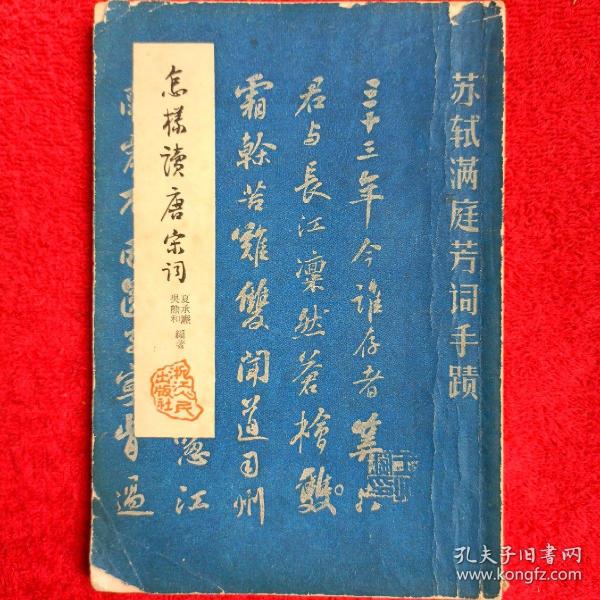 苏轼满庭芳词手蹟
三十三年今谁存者算只
君与長江凛然蒼檜
霜幹苦難雙聞道司州
江
過
怎樣讀唐宋词
夏承燾
吳熊和 編著
浙江人民
出版社
孔夫子旧书网
www.kongfz.com